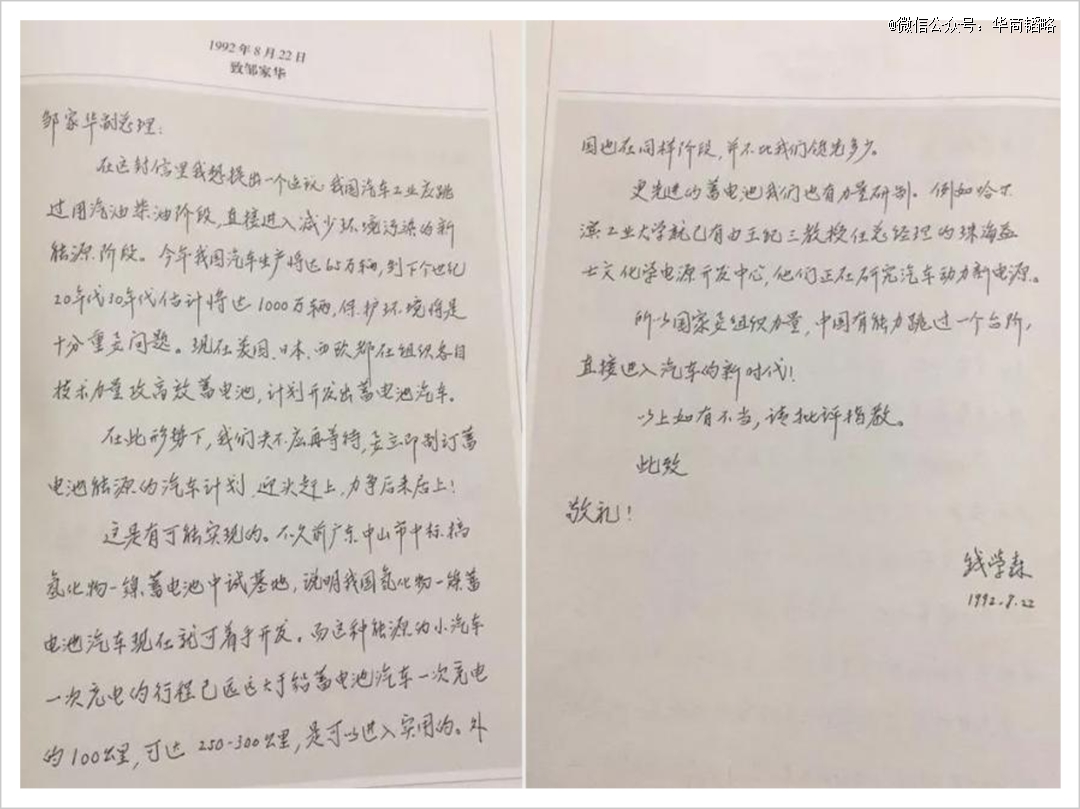 @微信公众号：华商韬略
1992年8月22日
致邹家华
邹家华副总理：
在这封信里我想提出一个建议：我国汽车工业应跳
过用汽油柴油阶段，直接进入减少环境污染的新
能源阶段。今年我国汽车生产将达65万辆，到下个世纪
20年代30年代估计将达1000万辆，保护环境将是
十分重要问题。现在美国、日本、西欧都在组织各自
技术力量攻高效蓄电池，计划开发出蓄电池汽车。
在此形势下，我们决不应再等待，要立即制订蓄
电池能源的汽车计划，迎头赶上，力争后来居上！
这是有可能实现的。不久前广东中山市中标搞
氢化物—镍蓄电池中试基地，说明我国氢化物—镍蓄
电池汽车现在就可着手开发。而这种能源的小汽车
一次充电的行程已远远大于铅蓄电池汽车一次充电
的100公里，可达250-300公里，是可以进入实用的。外
国也在同样阶段，并不比我们领先多少。
更先进的蓄电池我们也有力量研制。例如哈尔
滨工业大学就已有由王纪三教授任总经理的珠海益
士文化学电源开发中心，他们正在研究汽车动力新电源。
所以国家要组织力量，中国有能力跳过一个台阶，
直接进入汽车的新时代！
以上如有不当，请批评指教。
此致
敬礼！
钱学森
1992.8.22